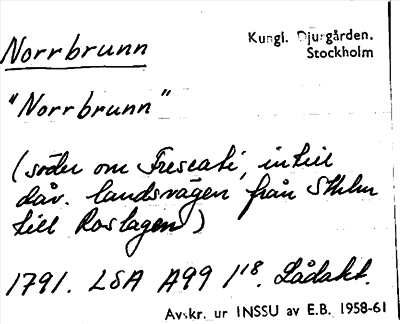 Norrbrunn
Kungl. Djurgården.
Stockholm
"Norrbrunn"
(söder om Frescati, intill
dåv. landsvägen från Sthlm
till Roslagen)
1791. LSA A99 1¹⁸. Lådakt.
Avskr. ur INSSU av E.B. 1958-61